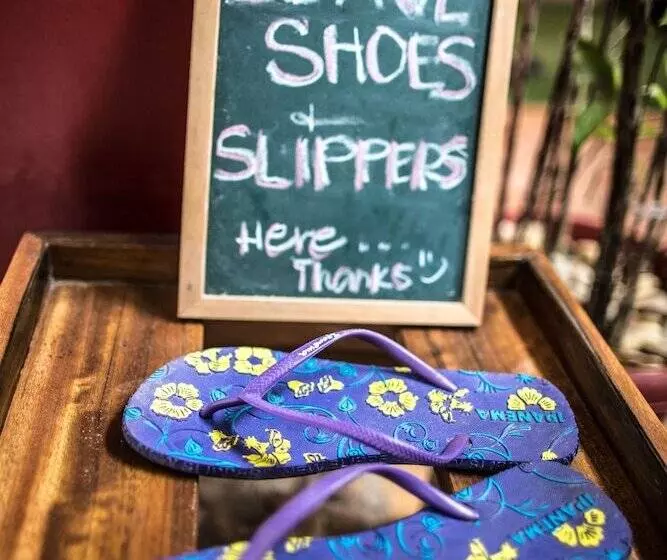 SHOES
&
SLIPPERS
Here....
Thanks
Ipanema
IPANEMA
IPANEMA